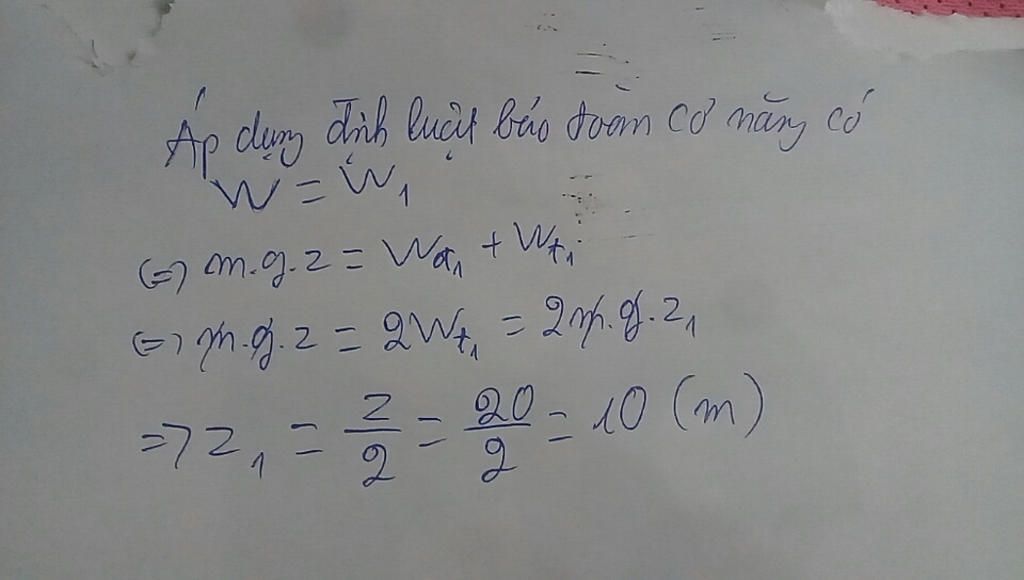 Áp dụng định luật bảo toàn cơ năng có
W = W₁
(=) m.g.z = Wđ₁ + Wt₁
(=) m.g.z = 2Wt₁ = 2m.g.z₁
=> z₁ = z/2 = 20/2 = 10 (m)